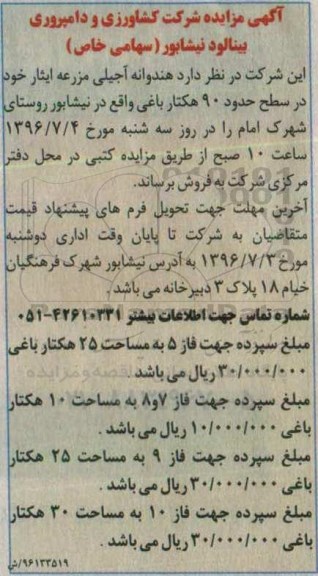 آگهی مزایده شرکت کشاورزی و دامپروری
بینالود نیشابور (سهامی خاص)
این شرکت در نظر دارد هندوانه آجیلی مزرعه ایثار خود
در سطح حدود ۹۰ هکتار باغی واقع در نیشابور روستای
شهرک امام را در روز سه شنبه مورخ ۱۳۹۶/۷/۴
ساعت ۱۰ صبح از طریق مزایده کتبی در محل دفتر
مرکزی شرکت به فروش برساند.
آخرین مهلت جهت تحویل فرم های پیشنهاد قیمت
متقاضیان به شرکت تا پایان وقت اداری دوشنبه
مورخ ۱۳۹۶/۷/۳ به آدرس نیشابور شهرک فرهنگیان
خیام ۱۸ پلاک ۳ دبیرخانه می باشد.
شماره تماس جهت اطلاعات بیشتر ۴۲۶۱۰۳۳۱-۰۵۱
مبلغ سپرده جهت فاز ۵ به مساحت ۲۵ هکتار باغی
۳۰/۰۰۰/۰۰۰ ریال می باشد.
مبلغ سپرده جهت فاز ۷و۸ به مساحت ۱۰ هکتار
باغی ۱۰/۰۰۰/۰۰۰ ریال می باشد.
مبلغ سپرده جهت فاز ۹ به مساحت ۲۵ هکتار
باغی ۳۰/۰۰۰/۰۰۰ ریال می باشد.
مبلغ سپرده جهت فاز ۱۰ به مساحت ۳۰ هکتار
باغی ۳۰/۰۰۰/۰۰۰ ریال می باشد.
۹۶۱۳۳۵۱۹/ش